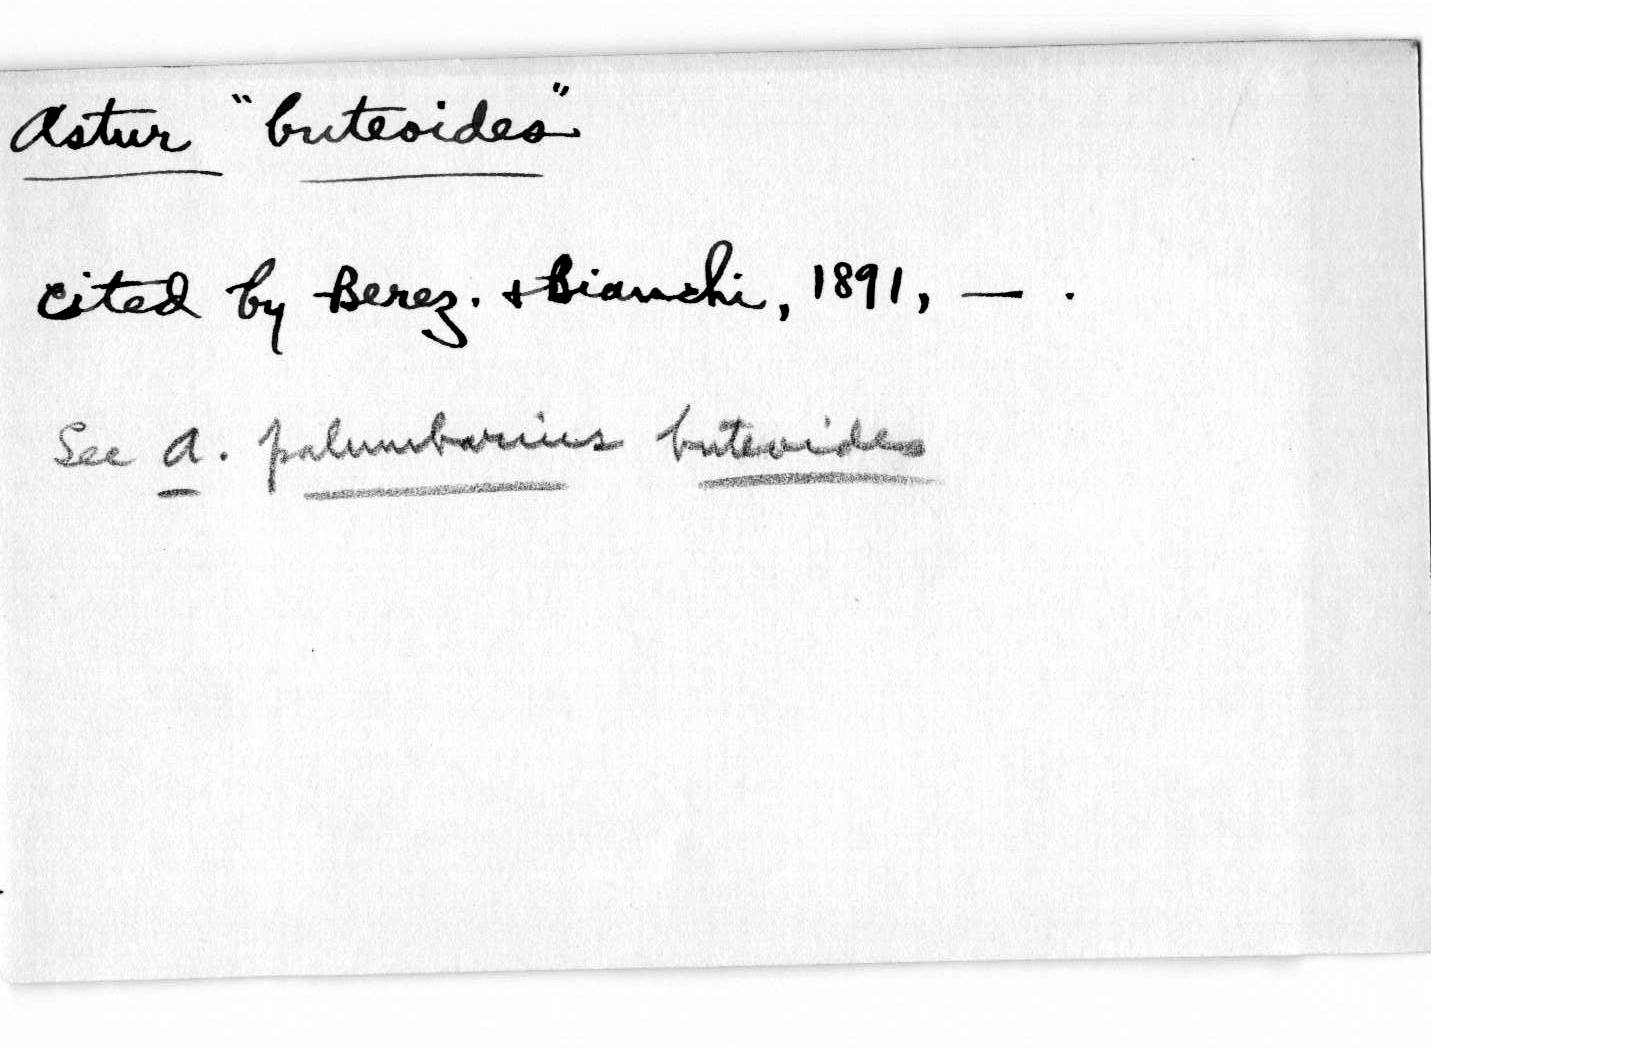 Astur "buteoides"
cited by Berez. & Bianchi, 1891, — .
See A. palumbarius buteoides